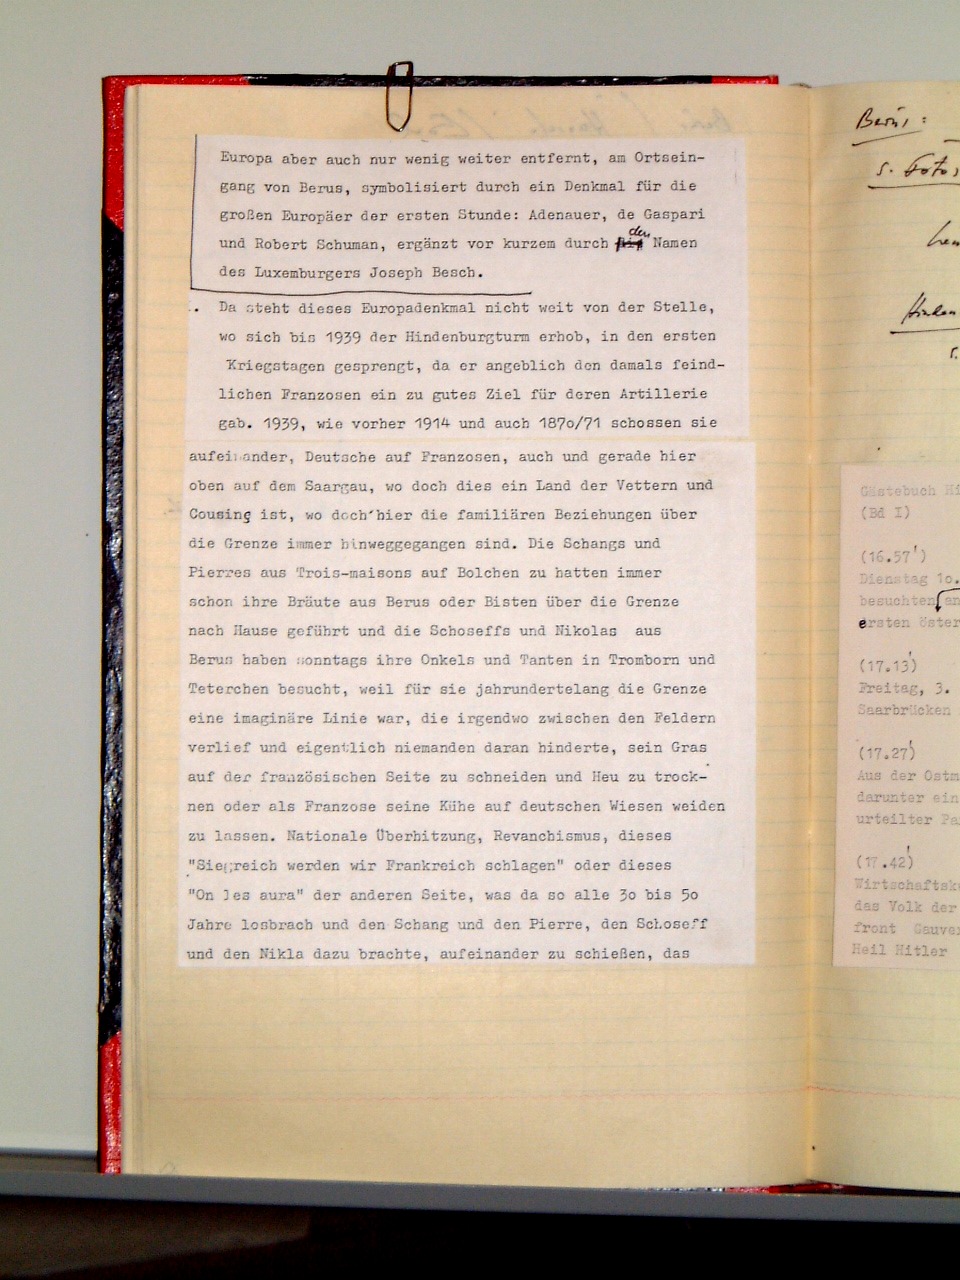 Europa aber auch nur wenig weiter entfernt, am Ortsein-
gang von Berus, symbolisiert durch ein Denkmal für die
großen Europäer der ersten Stunde: Adenauer, de Gaspari
und Robert Schuman, ergänzt vor kurzem durch den Namen
des Luxemburgers Joseph Besch.
Da steht dieses Europadenkmal nicht weit von der Stelle,
wo sich bis 1939 der Hindenburgturm erhob, in den ersten
Kriegstagen gesprengt, da er angeblich den damals feind-
lichen Franzosen ein zu gutes Ziel für deren Artillerie
gab. 1939, wie vorher 1914 und auch 187o/71 schossen sie
aufeinander, Deutsche auf Franzosen, auch und gerade hier
oben auf dem Saargau, wo doch dies ein Land der Vettern und
Cousing ist, wo doch'hier die familiären Beziehungen über
die Grenze immer hinweggegangen sind. Die Schangs und
Pierres aus Trois-maisons auf Bolchen zu hatten immer
schon ihre Bräute aus Berus oder Bisten über die Grenze
nach Hause geführt und die Schoseffs und Nikolas aus
Berus haben sonntags ihre Onkels und Tanten in Tromborn und
Teterchen besucht, weil für sie jahrundertelang die Grenze
eine imaginäre Linie war, die irgendwo zwischen den Feldern
verlief und eigentlich niemanden daran hinderte, sein Gras
auf der französischen Seite zu schneiden und Heu zu trock-
nen oder als Franzose seine Kühe auf deutschen Wiesen weiden
zu lassen. Nationale Überhitzung, Revanchismus, dieses
"Siegreich werden wir Frankreich schlagen" oder dieses
"On les aura" der anderen Seite, was da so alle 3o bis 5o
Jahre losbrach und den Schang und den Pierre, den Schoseff
und den Nikla dazu brachte, aufeinander zu schießen, das
Berus:
s. Fotos
Gästebuch Hi
(Bd I)
(16.57')
Dienstag 1o.
besuchten en
ersten öster
(17.13')
Freitag, 3.
Saarbrücken
(17.27')
Aus der Ostm
darunter ein
urteilter Pa
(17.42')
Wirtschaftsk
das Volk der
front Gauve
Heil Hitler